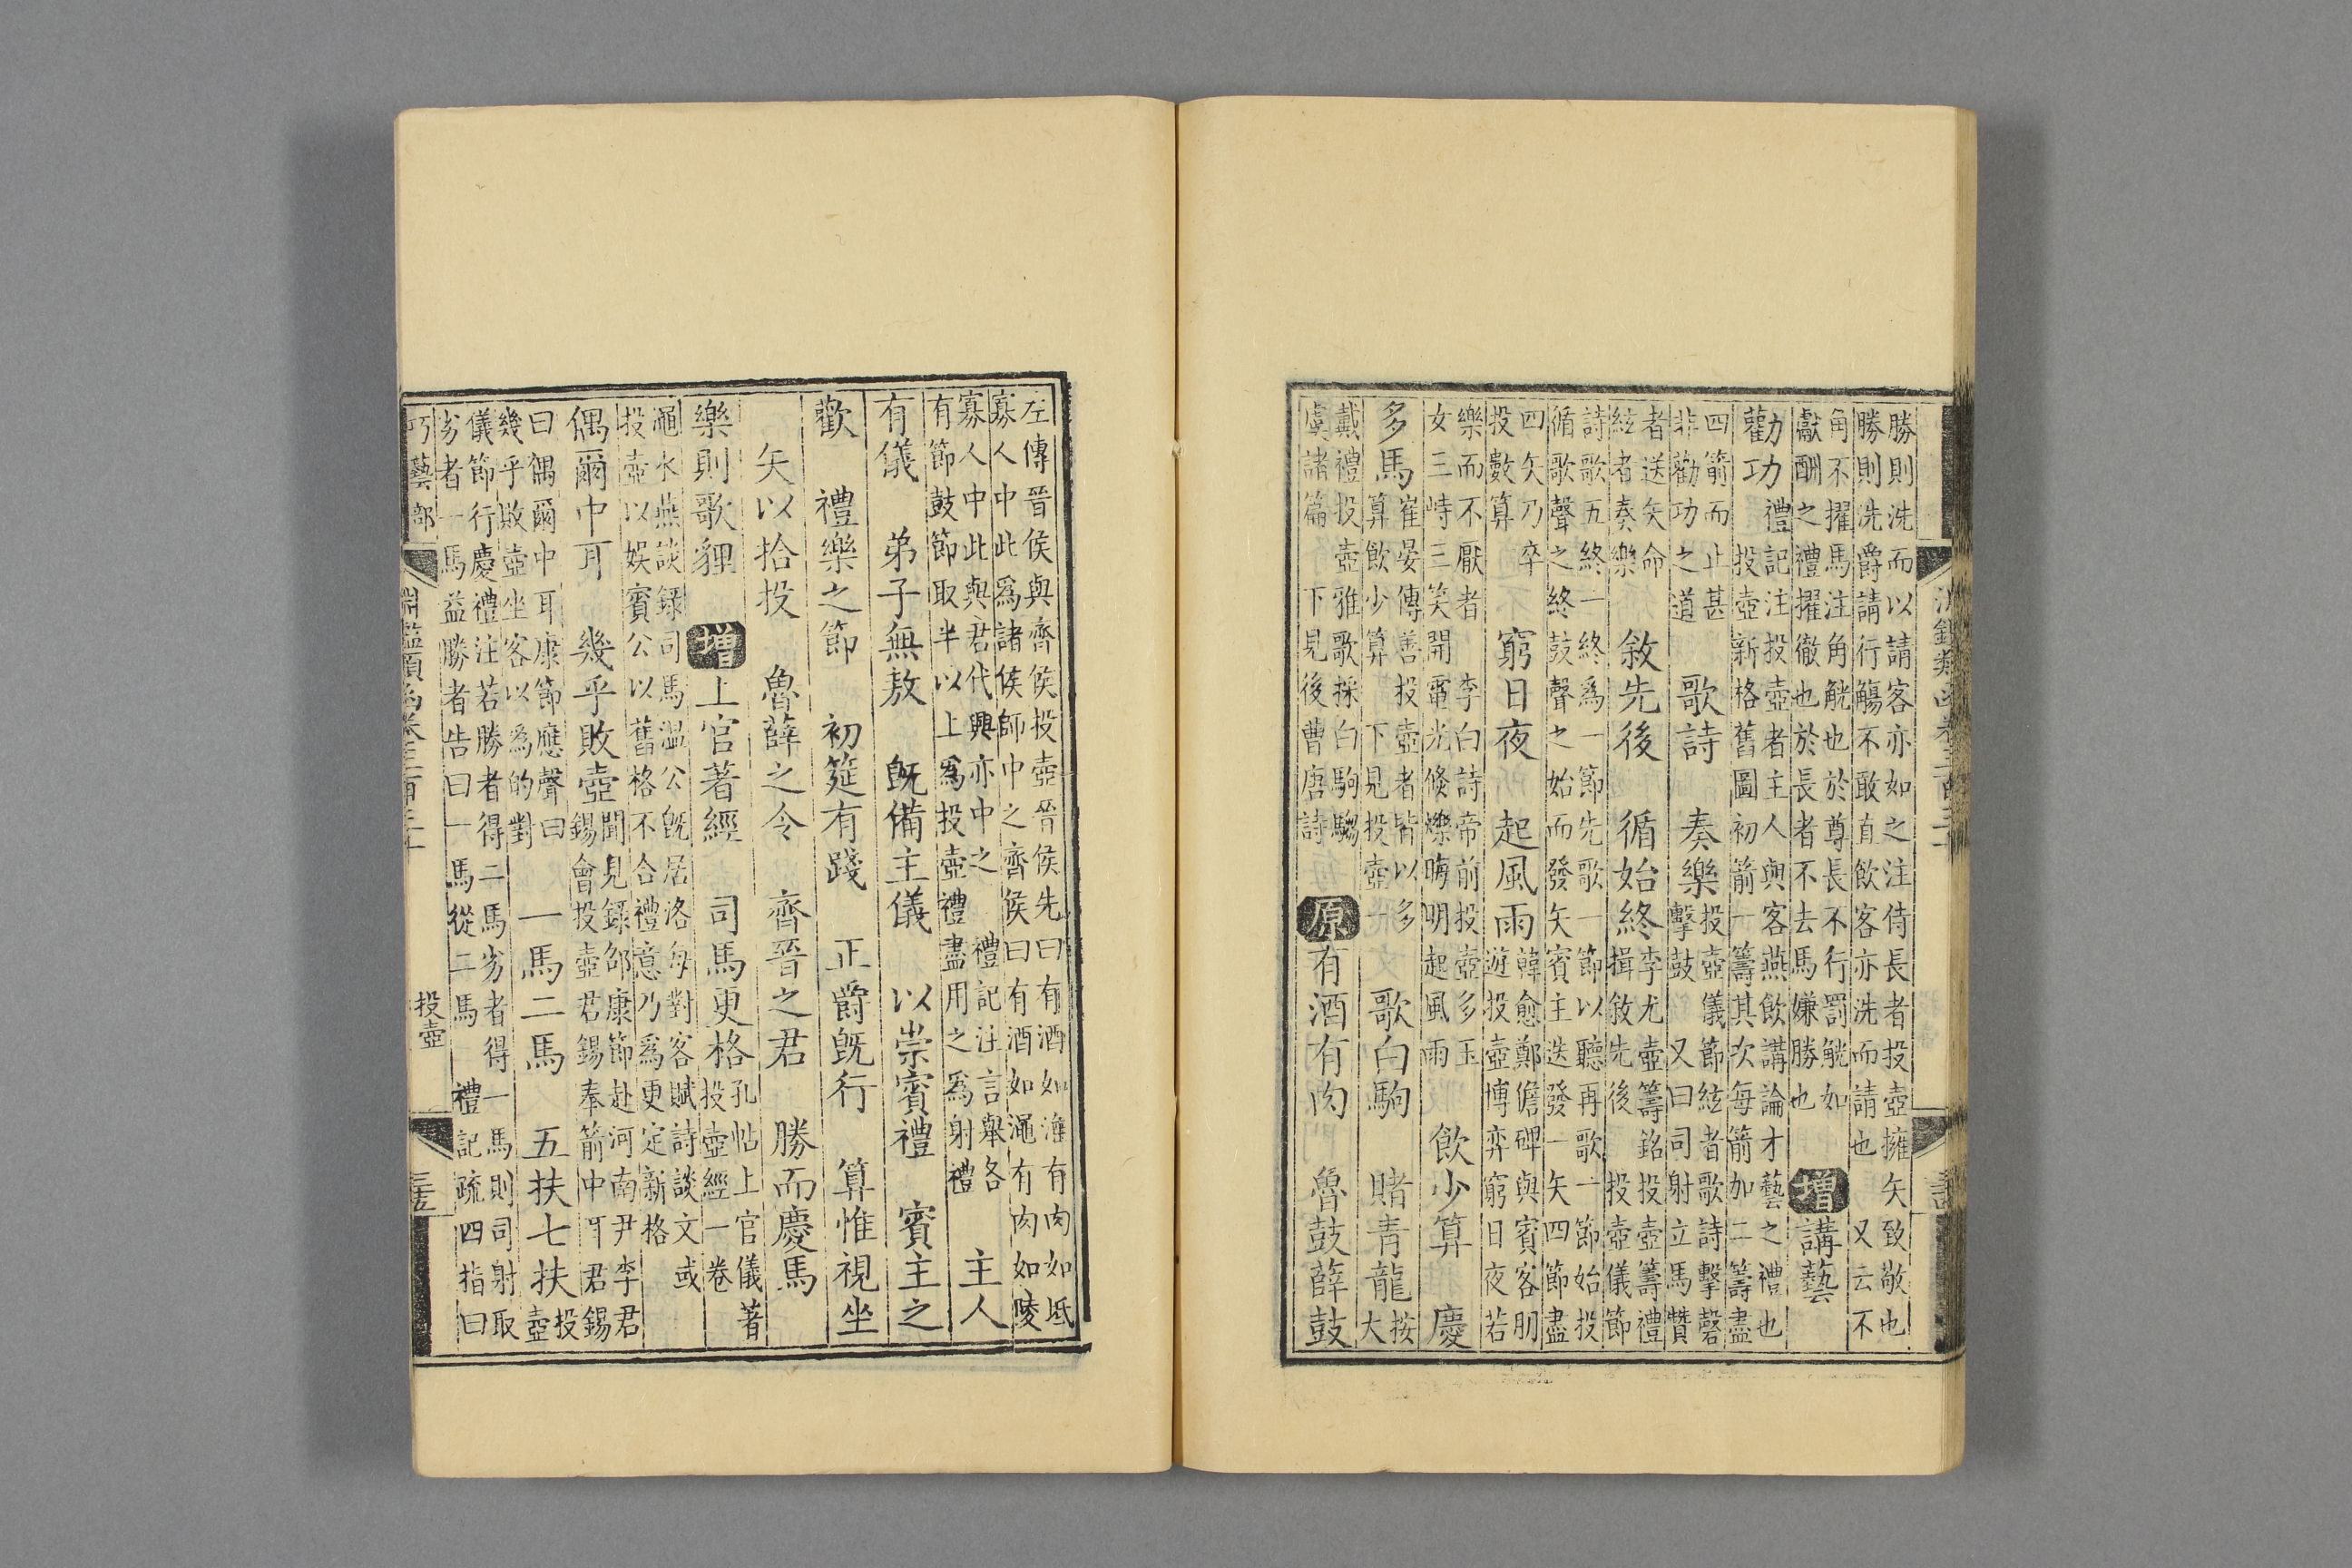 淵鑑類函卷三百三十
勝則洗而以請客亦如之注侍長者投壺擁矢致敬也
勝則洗爵請行觴不敢直飲客亦洗而請也 又云不
角不擢馬注角觥也於尊長不行罰觥如
獻酬之禮擢徹也於長者不去馬嫌勝也
增 講藝
勸功
禮記注投壺者主人與客燕飲講論才藝之禮也
投壺新格舊圖初箭一籌其次每箭加二籌盡
四箭而止甚
非勸功之道
歌詩 奏樂
投壺儀節絃者歌詩擊磬
擊鼓 又曰司射立馬贊
者送矢命
絃者奏樂
敘先後 循始終
李尤壺籌銘投壺籌禮
揖敘先後 投壺儀節
詩歌五終一終爲一節先歌一節以聽再歌一節始投
循歌聲之終鼓聲之始而發矢賓主迭發一矢四節盡
四矢乃卒
投數算
窮日夜 起風雨
韓愈鄭儋碑與賓客朋
遊投壺博弈窮日夜若
樂而不厭者 李白詩帝前投壺多玉
女三峙三笑開電光倏爍晦明起風雨
飲少算 慶
多馬
崔晏傳善投壺者皆以多
算飲少算 下見投壺一
歌白駒 賭青龍
按
大
戴禮投壺雅歌採白駒騶
虞諸篇 下見後曹唐詩
原 有酒有肉 魯鼓薛鼓
左傳晉侯與齊侯投壺晉侯先曰有酒如淮有肉如坻
寡人中此爲諸侯師中之齊侯曰有酒如澠有肉如陵
寡人中此與君代興亦中之 禮記注言舉各
有節鼓節取半以上爲投壺禮盡用之爲射禮
主人
有儀 弟子無敖 旣備主儀 以崇賓禮 賓主之
歡 禮樂之節 初筵有踐 正爵旣行 算惟視坐
矢以拾投 魯薛之令 齊晉之君 勝而慶馬
樂則歌貍 增 上官著經 司馬更格
孔帖上官儀著
投壺經一卷
澠水燕談録司馬溫公旣居洛每對客賦詩談文或
投壺以娛賓公以舊格不合禮意乃爲更定新格
偶爾中耳 幾乎敗壺
聞見録邵康節赴河南尹李君
錫會投壺君錫奉箭中耳君錫
曰偶爾中耳康節應聲曰
幾乎敗壺坐客以爲的對
一馬二馬 五扶七扶
投
壺
儀節行慶禮注若勝者得二馬劣者得一馬則司射取
劣者一馬益勝者告曰一馬從二馬 禮記疏四指曰
巧藝部
淵鑑類函卷三百三十
投壺
三五